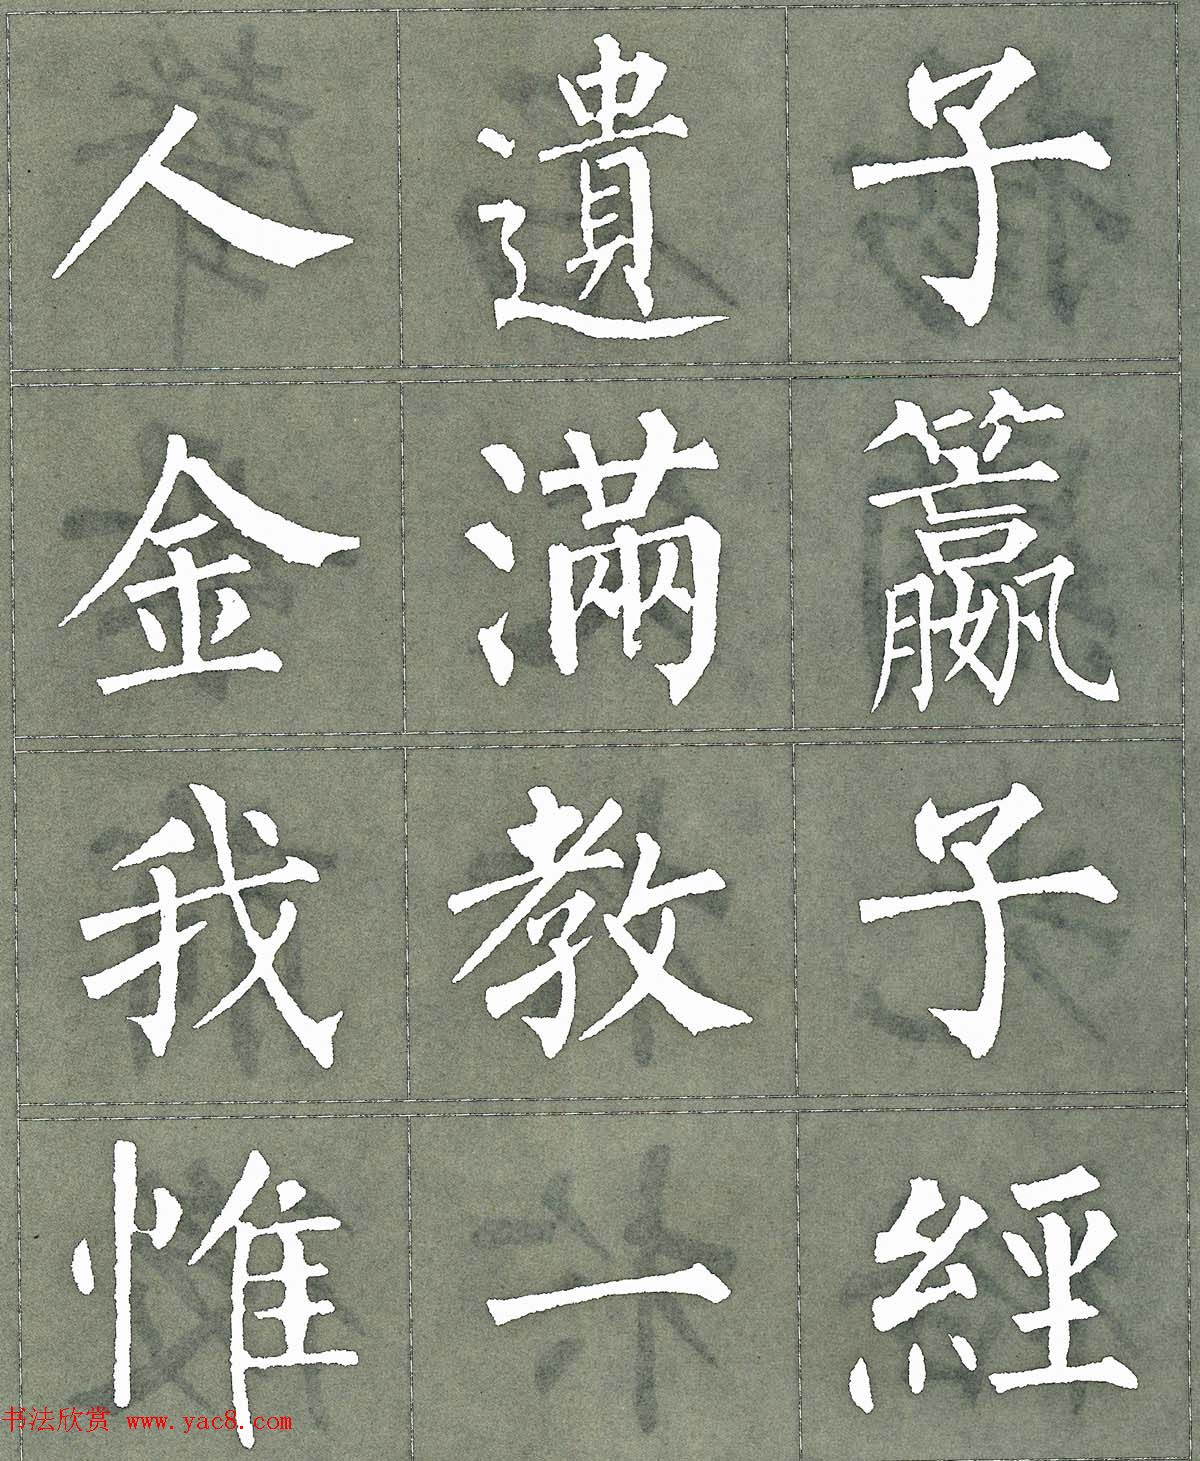 人遺子
金滿籝
我教子
惟一經
书法欣赏 www.yac8.com